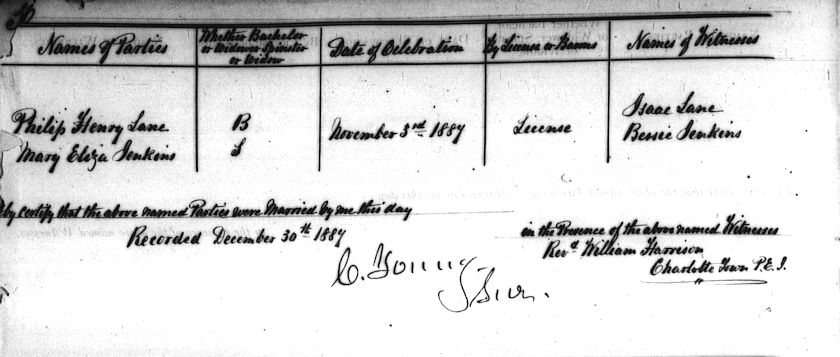 Names of Parties
Whether Bachelor
or Widower Spinster
or Widow
Date of Celebration
By License or Banns
Names of Witnesses
Philip Henry Lane
Mary Eliza Jenkins
B
S
November 3rd 1887
License
Isaac Lane
Bessie Jenkins
by certify that the above named Parties were Married by me this day
in the Presence of the above named Witnesses
Recorded December 30th 1887
Revd William Harrison
Charlotte Town P.E.I.
C. Young